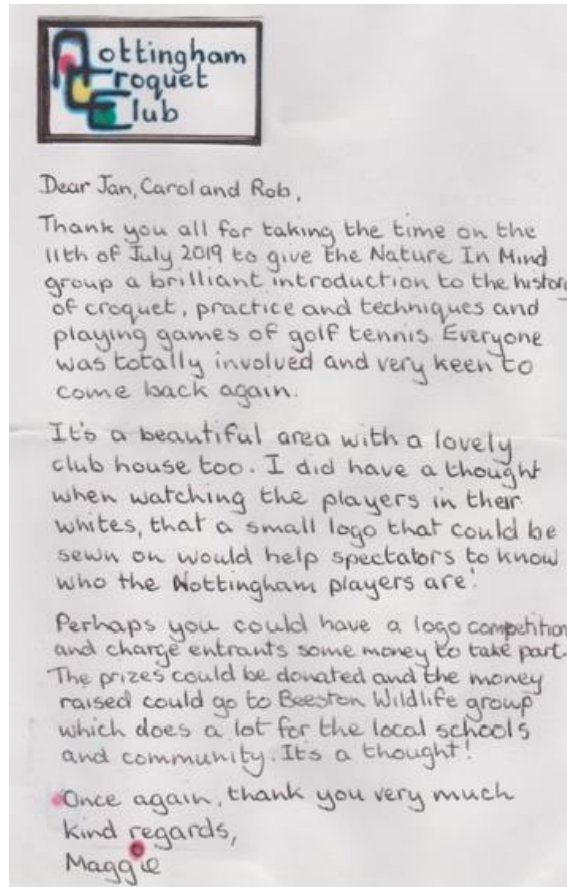 Nottingham
Croquet
Club
Dear Jan, Carol and Rob,
Thank you all for taking the time on the
11th of July 2019 to give the Nature In Mind
group a brilliant introduction to the history
of croquet, practice and techniques and
playing games of golf tennis. Everyone
was totally involved and very keen to
come back again.
It's a beautiful area with a lovely
club house too. I did have a thought
when watching the players in their
whites, that a small logo that could be
sewn on would help spectators to know
who the Nottingham players are!
Perhaps you could have a logo competition
and charge entrants some money to take part.
The prizes could be donated and the money
raised could go to Beeston Wildlife group
which does a lot for the local schools
and community. It's a thought!
Once again, thank you very much
kind regards,
Maggie